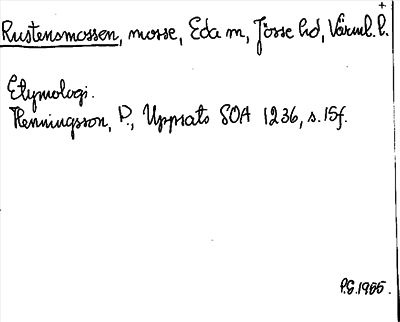 Rustensmossen, mosse, Eda sn, Jösse hd, Värml. l.
Etymologi.
Henningsson, P., Uppsats SOA 1236, s. 15f.
P.G. 1985.